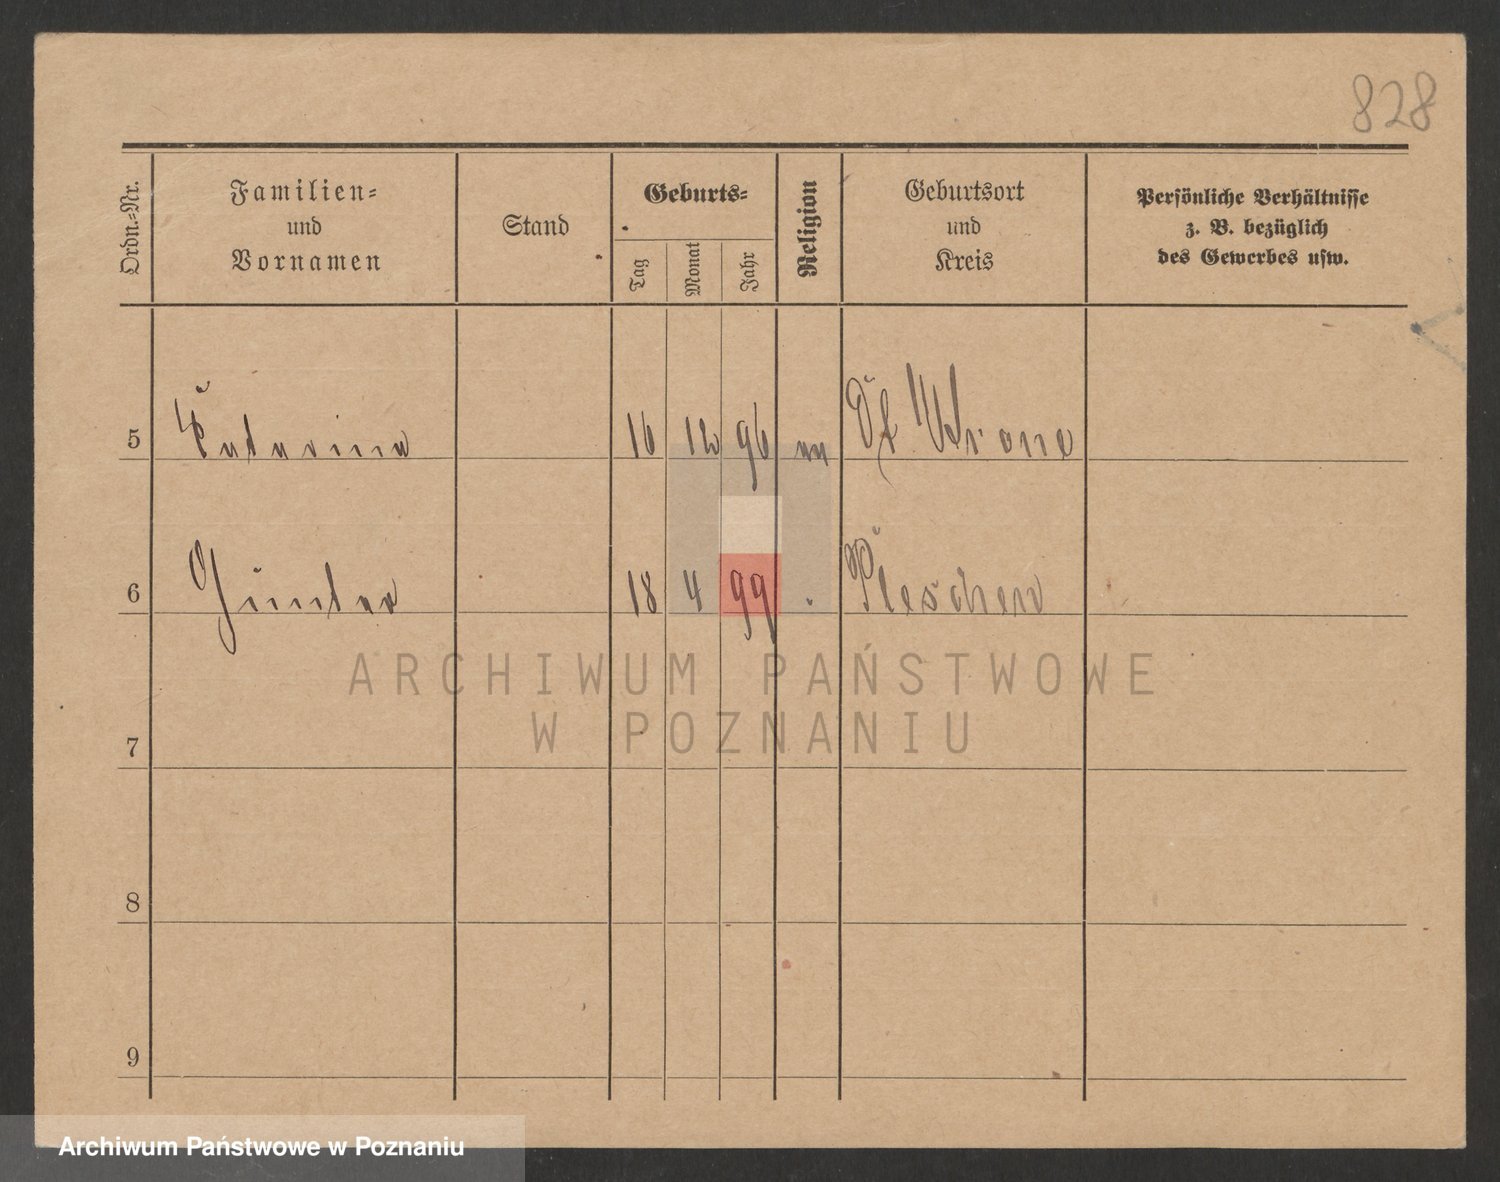 828
Ordn.-Nr.
Familien-
und
Vornamen
Stand
Geburts-
Tag
Monat
Jahr
Religion
Geburtsort
und
Kreis
Persönliche Verhältnisse
z. B. bezüglich
des Gewerbes usw.
5 16 12 96 Dt Krone
6 Günter 18 4 99 Pleschen
ARCHIWUM PAŃSTWOWE
W POZNANIU
7
8
9
Archiwum Państwowe w Poznaniu